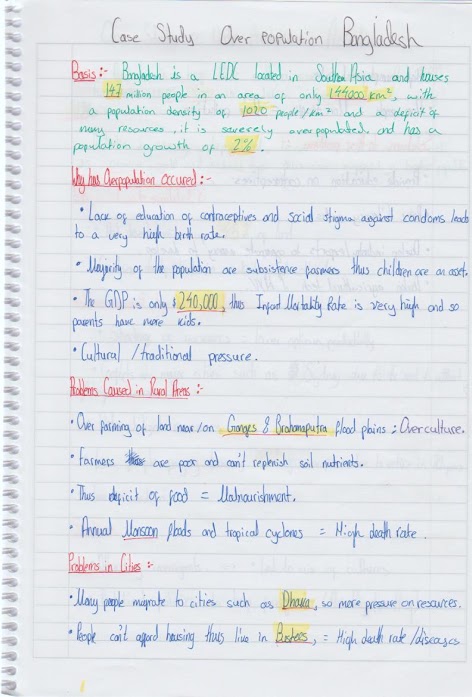 Case Study Over population Bangladesh
Basis:- Bangladesh is a LEDC located in Southern Asia and houses
147 million people in an area of only 144000 km², with
a population density of 1020 people/km² and a deficit of
many resources, it is severely overpopulated and has a
population growth of 2%.
Why has Overpopulation occured:-
• Lack of education of contraceptives and social stigma against condoms leads
to a very high birth rate.
• Majority of the population are subsistence farmers thus children are an asset.
• The GDP is only $240,000, thus Infant Mortality Rate is very high and so
parents have more kids.
• Cultural / traditional pressure.
Problems Caused in Rural Areas:-
• Over farming of land near/on Ganges & Brahamaputra flood plains: Overculture.
• Farmers are poor and can't replenish soil nutrients.
• Thus deficit of food = Malnourishment.
• Annual Monsoon floods and tropical cyclones = High death rate.
Problems in Cities:-
• Many people migrate to cities such as Dhaka, so more pressure on resources.
• People can't afford housing thus live in Bustees, = High death rate/diseases